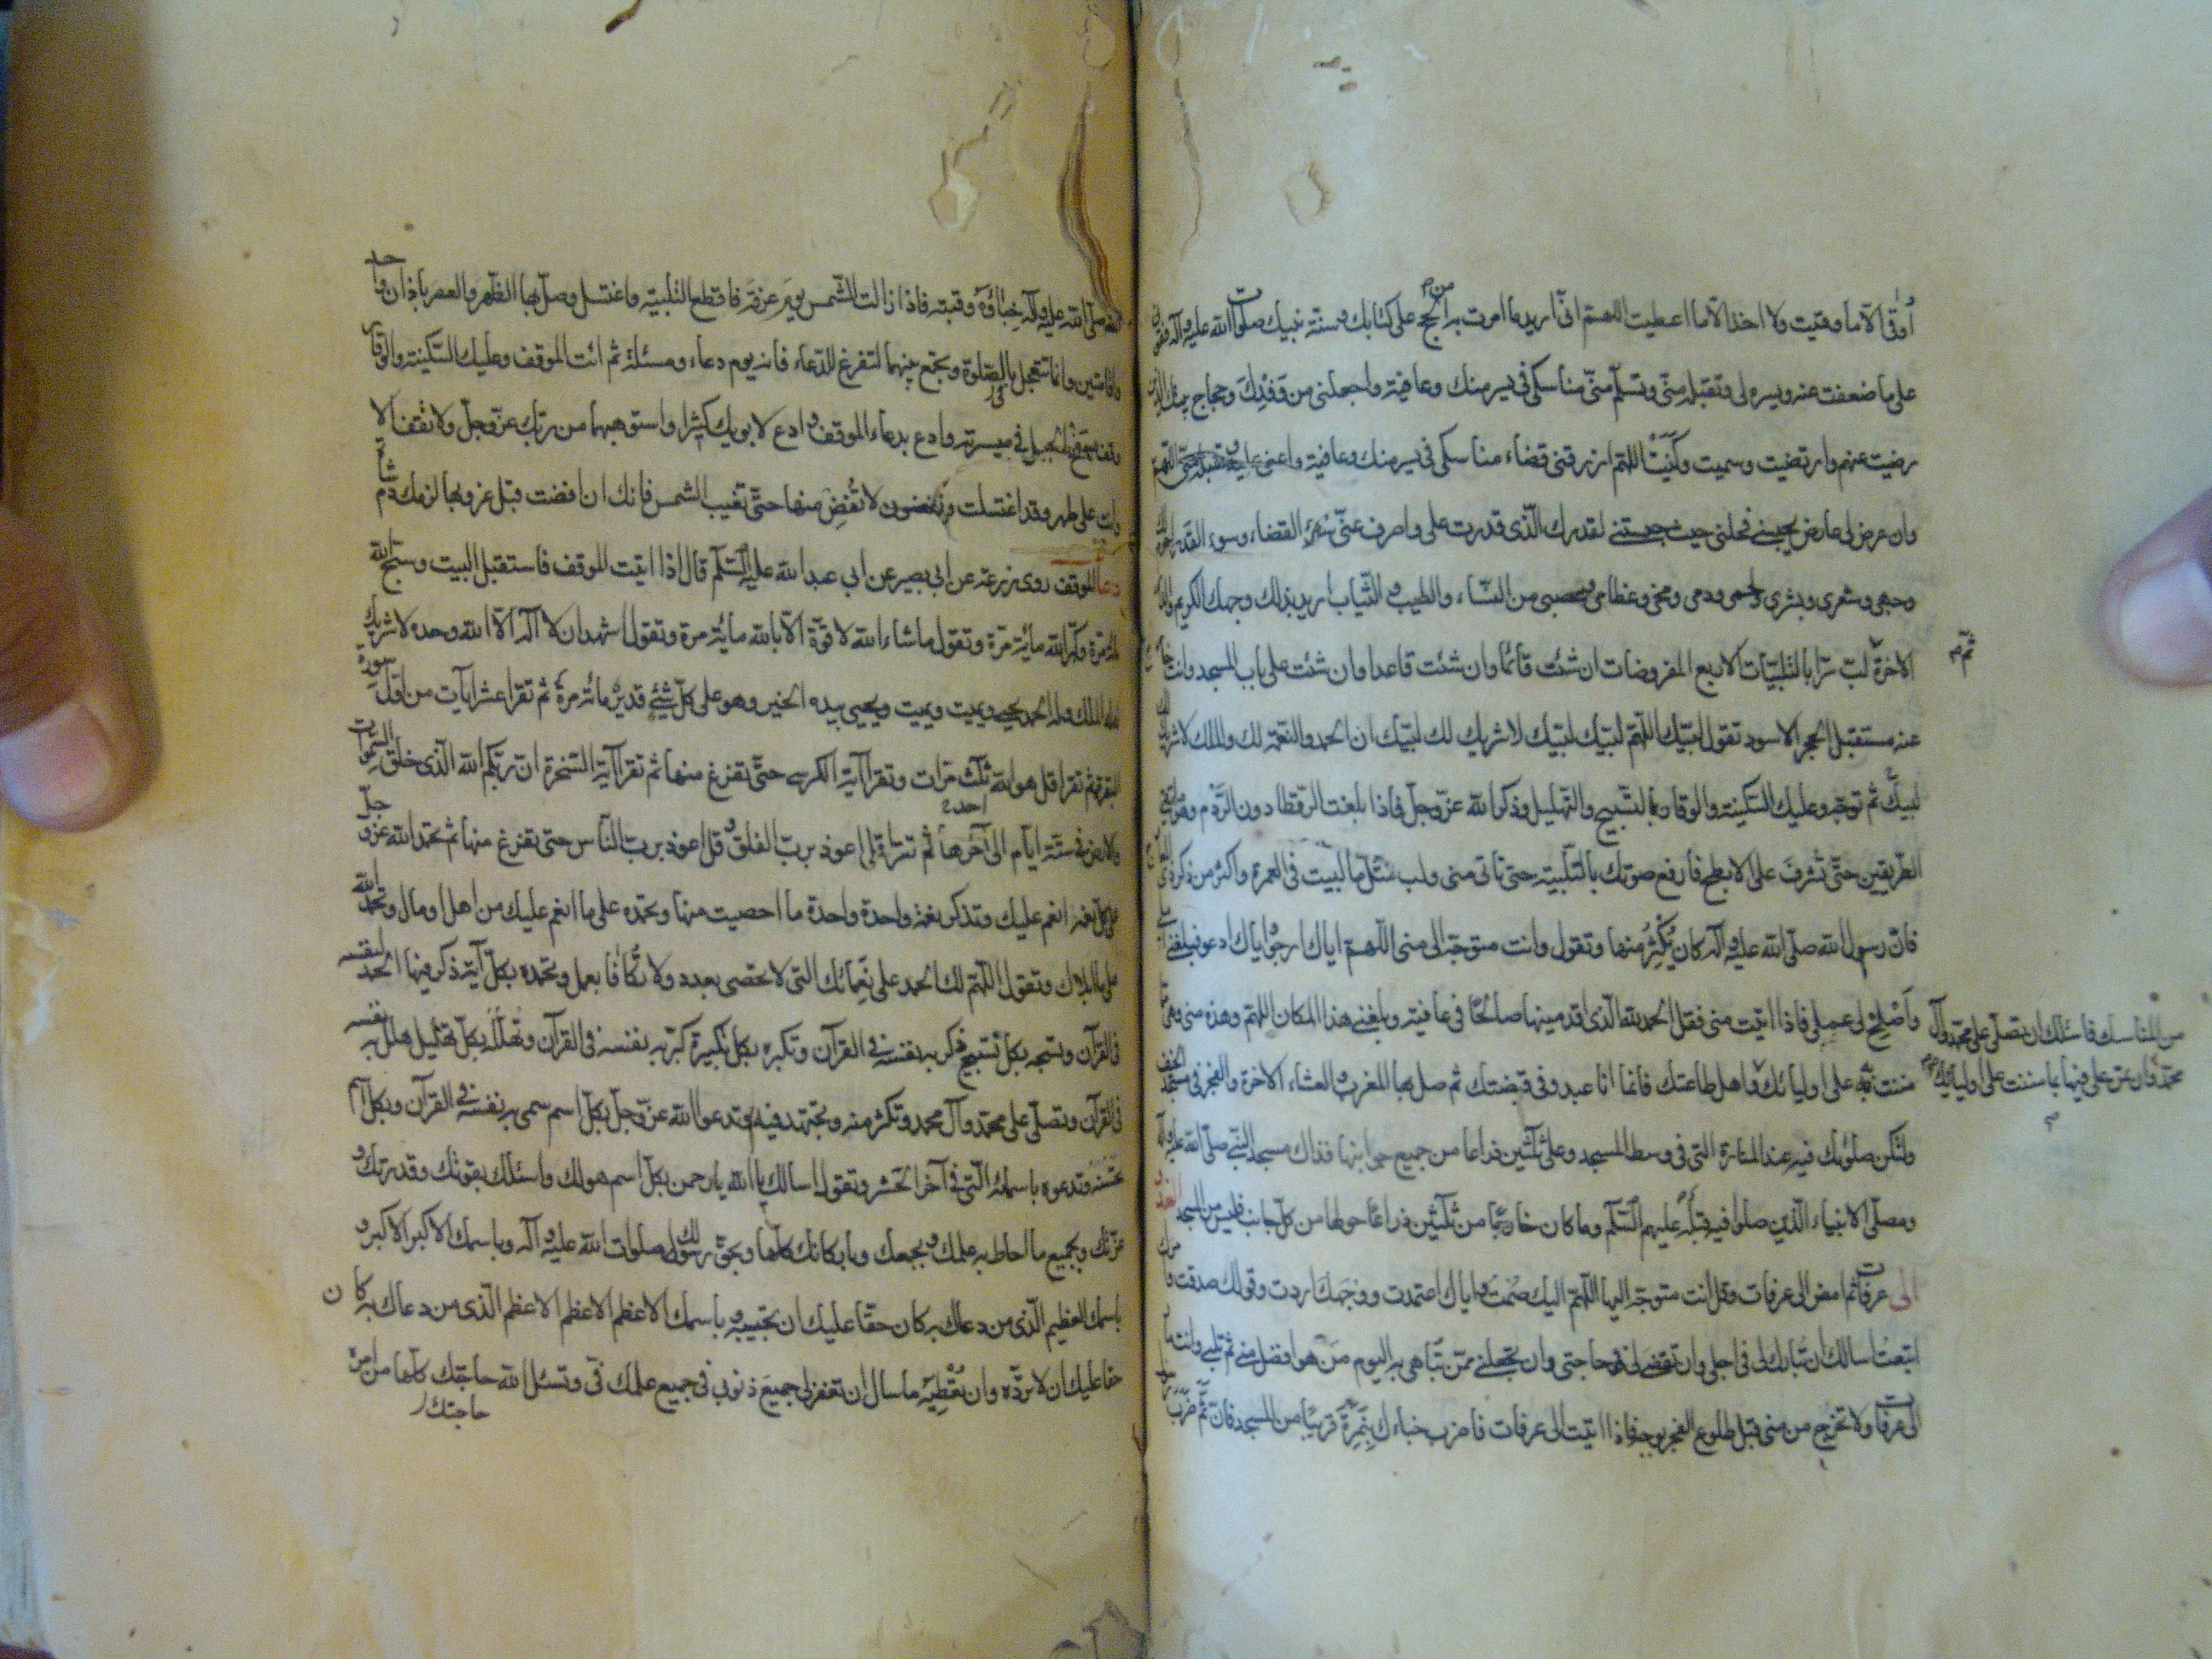 أوقى الا ما وقيت ولا اخذ الا ما اعطيت اللهم انى اريد ما امرت به من الحج على كتابك وسنة نبيك صلوات الله عليه وآله فقونى
على ما ضعفت عنه ويسره لى وتقبله منى وتسلم منى مناسكى فى يسر منك وعافية واجعلنى من وفدك وحجاج بيتك الذين
رضيت عنهم وارتضيت وسميت وكنيت اللهم ارزقنى قضاء مناسكى فى يسر منك وعافية واعنى عليه وتقبله منى اللهم
وان عرض لى عارض يحبسنى فحلنى حيث حبستنى لقدرك الذى قدرت على واصرف عنى سوء القضاء وسوء القدر
وجهى وشعرى وبشرى ولحمى ودمى ومخى وعظامى وعصبى من النساء والطيب والثياب اريد بذلك وجهك الكريم والدار
الاخرة ثم لب سرا بالتلبيات الاربع المفروضات ان شئت قائما وان شئت قاعدا وان شئت على باب المسجد وانت خارج
عنه مستقبل الحجر الاسود تقول لبيك اللهم لبيك لبيك لا شريك لك لبيك ان الحمد والنعمة لك والملك لا شريك لك
لبيك ثم توجه وعليك السكينة والوقار بالتسبيح والتهليل وذكر الله عز وجل فاذا بلغت الرقطا دون الردم وهو ملتقى
الطريقين حتى تشرف على الابطح فارفع صوتك بالتلبية حتى تاتى منى ولب مثل ما لبيت فى العمرة واكثر من ذكر ذى
فان رسول الله صلى الله عليه وآله كان يكثر منها وتقول وانت متوجه الى منى اللهم اياك ارجو واياك ادعو فبلغنى املى
واصلح لى عملى فاذا اتيت منى فقل الحمد لله الذى اقدمنيها صالحا فى عافية وبلغنى هذا المكان اللهم وهذه منى وهى مما
مننت به على اوليائك واهل طاعتك فانما انا عبدك وفى قبضتك ثم صل بها المغرب والعشاء الاخرة والفجر فى مسجد الخيف
ولتكن صلوتك فيه عند المنارة التى فى وسط المسجد وعلى ثلثين ذراعا من جميع جوانبها فذاك مسجد النبى صلى الله عليه وآله
ومصلى الانبياء الذين صلوا فيه قبله عليهم السلم وما كان خارجا من ثلثين ذراعا حولها من كل جانب فليس من المسجد الغدو
الى عرفات ثم امض الى عرفات وقل وانت متوجه اليها اللهم اليك صمدت واياك اعتمدت ووجهك اردت وقولك صدقت وامرك
اتبعت اسالك ان تبارك لى فى اجلى وان تقضى لى حاجتى وان تجعلنى ممن تباهى به اليوم من هو افضل منى ثم تلبى وانت مار
الى عرفات ولا تخرج من منى قبل طلوع الفجر بوجه فاذا اتيت الى عرفات فاضرب خباءك بنمرة قريبا من المسجد فان ثم ضرب
ثم م
من المناسك فاسئلك ان تصلى على محمد وآل
محمد وان تمن على فيها بما مننت على اوليائك
الله صلى الله عليه وآله خباؤه وقبته فاذا زالت الشمس يوم عرفة فاقطع التلبية واغتسل وصل بها الظهر والعصر باذان واحد
واقامتين وانما تتعجل بالصلوة وتجمع بينهما لتفرغ للدعاء فانه يوم دعاء ومسئلة ثم ائت الموقف وعليك السكينة والوقار
وقف بسفح الجبل فى ميسرته وادع بدعاء الموقف وادع لابويك كثيرا واستوهبهما من ربك عز وجل ولا تقف الا
وانت على طهر وقد اغتسلت ولا تفض منها حتى تغيب الشمس فانك ان افضت قبل غروبها لزمك دم شاة
دعاء الموقف روى زرعة عن ابى بصير عن ابى عبد الله عليه السلم قال اذا اتيت الموقف فاستقبل البيت وسبح الله
مائة مرة وكبر الله مائة مرة وتقول ما شاء الله لا قوة الا بالله مائة مرة وتقول اشهد ان لا آله الا الله وحده لا شريك
له له الملك وله الحمد يحيى ويميت ويميت ويحيى بيده الخير وهو على كل شئ قدير مائة مرة ثم تقرا عشر ايات من اول سورة
البقرة ثم تقرا قل هو الله احد ثلث مرات وتقرا آية الكرسى حتى تفرغ منها ثم تقرا آية السخرة ان ربكم الله الذى خلق السموات
والارض فى ستة ايام الى آخرها ثم تقرا قل اعوذ برب الفلق وقل اعوذ برب الناس حتى تفرغ منها ثم تحمد الله عز وجل
على كل نعمة انعم عليك وتذكر نعمه واحدة واحدة ما احصيت منها وتحمده على ما انعم عليك من اهل او مال وتحمد الله
على ما ابلاك وتقول اللهم لك الحمد على نعمائك التى لا تحصى بعدد ولا تكافا بعمل وتحمده بكل آية ذكر فيها الحمد لنفسه
فى القرآن وتسبحه بكل تسبيح ذكر به نفسه فى القرآن وتكبره بكل تكبيرة كبر به نفسه فى القرآن وتهلله بكل تهليل هلل به نفسه
فى القرآن وتصلى على محمد وآل محمد وتكثر منه وتجتهد فيه وتدعو الله عز وجل بكل اسم سمى به نفسه فى القرآن وبكل اسم
تحسنه وتدعوه باسمائه التى فى آخر الحشر وتقول اسالك يا الله يا رحمن بكل اسم هو لك واسئلك بقوتك وقدرتك و
عزتك وبجميع ما احاط به علمك وبجمعك وباركانك كلها وبحق رسولك صلوات الله عليه وآله وباسمك الاكبر الاكبر و
باسمك العظيم الذى من دعاك به كان حقا عليك ان تجيبه وباسمك الاعظم الاعظم الاعظم الذى من دعاك به كان
حقا عليك ان لا ترده وان تعطيه ما سال ان تغفر لى جميع ذنوبى فى جميع علمك فى وتسئل الله حاجتك كلها من امر
حاجتك